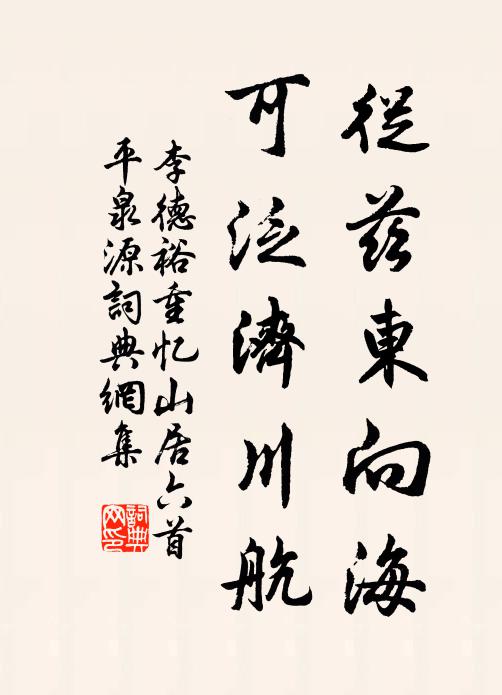 從茲東向海
可泛濟川航
李德裕重忆山居六首
平泉源詞典網集